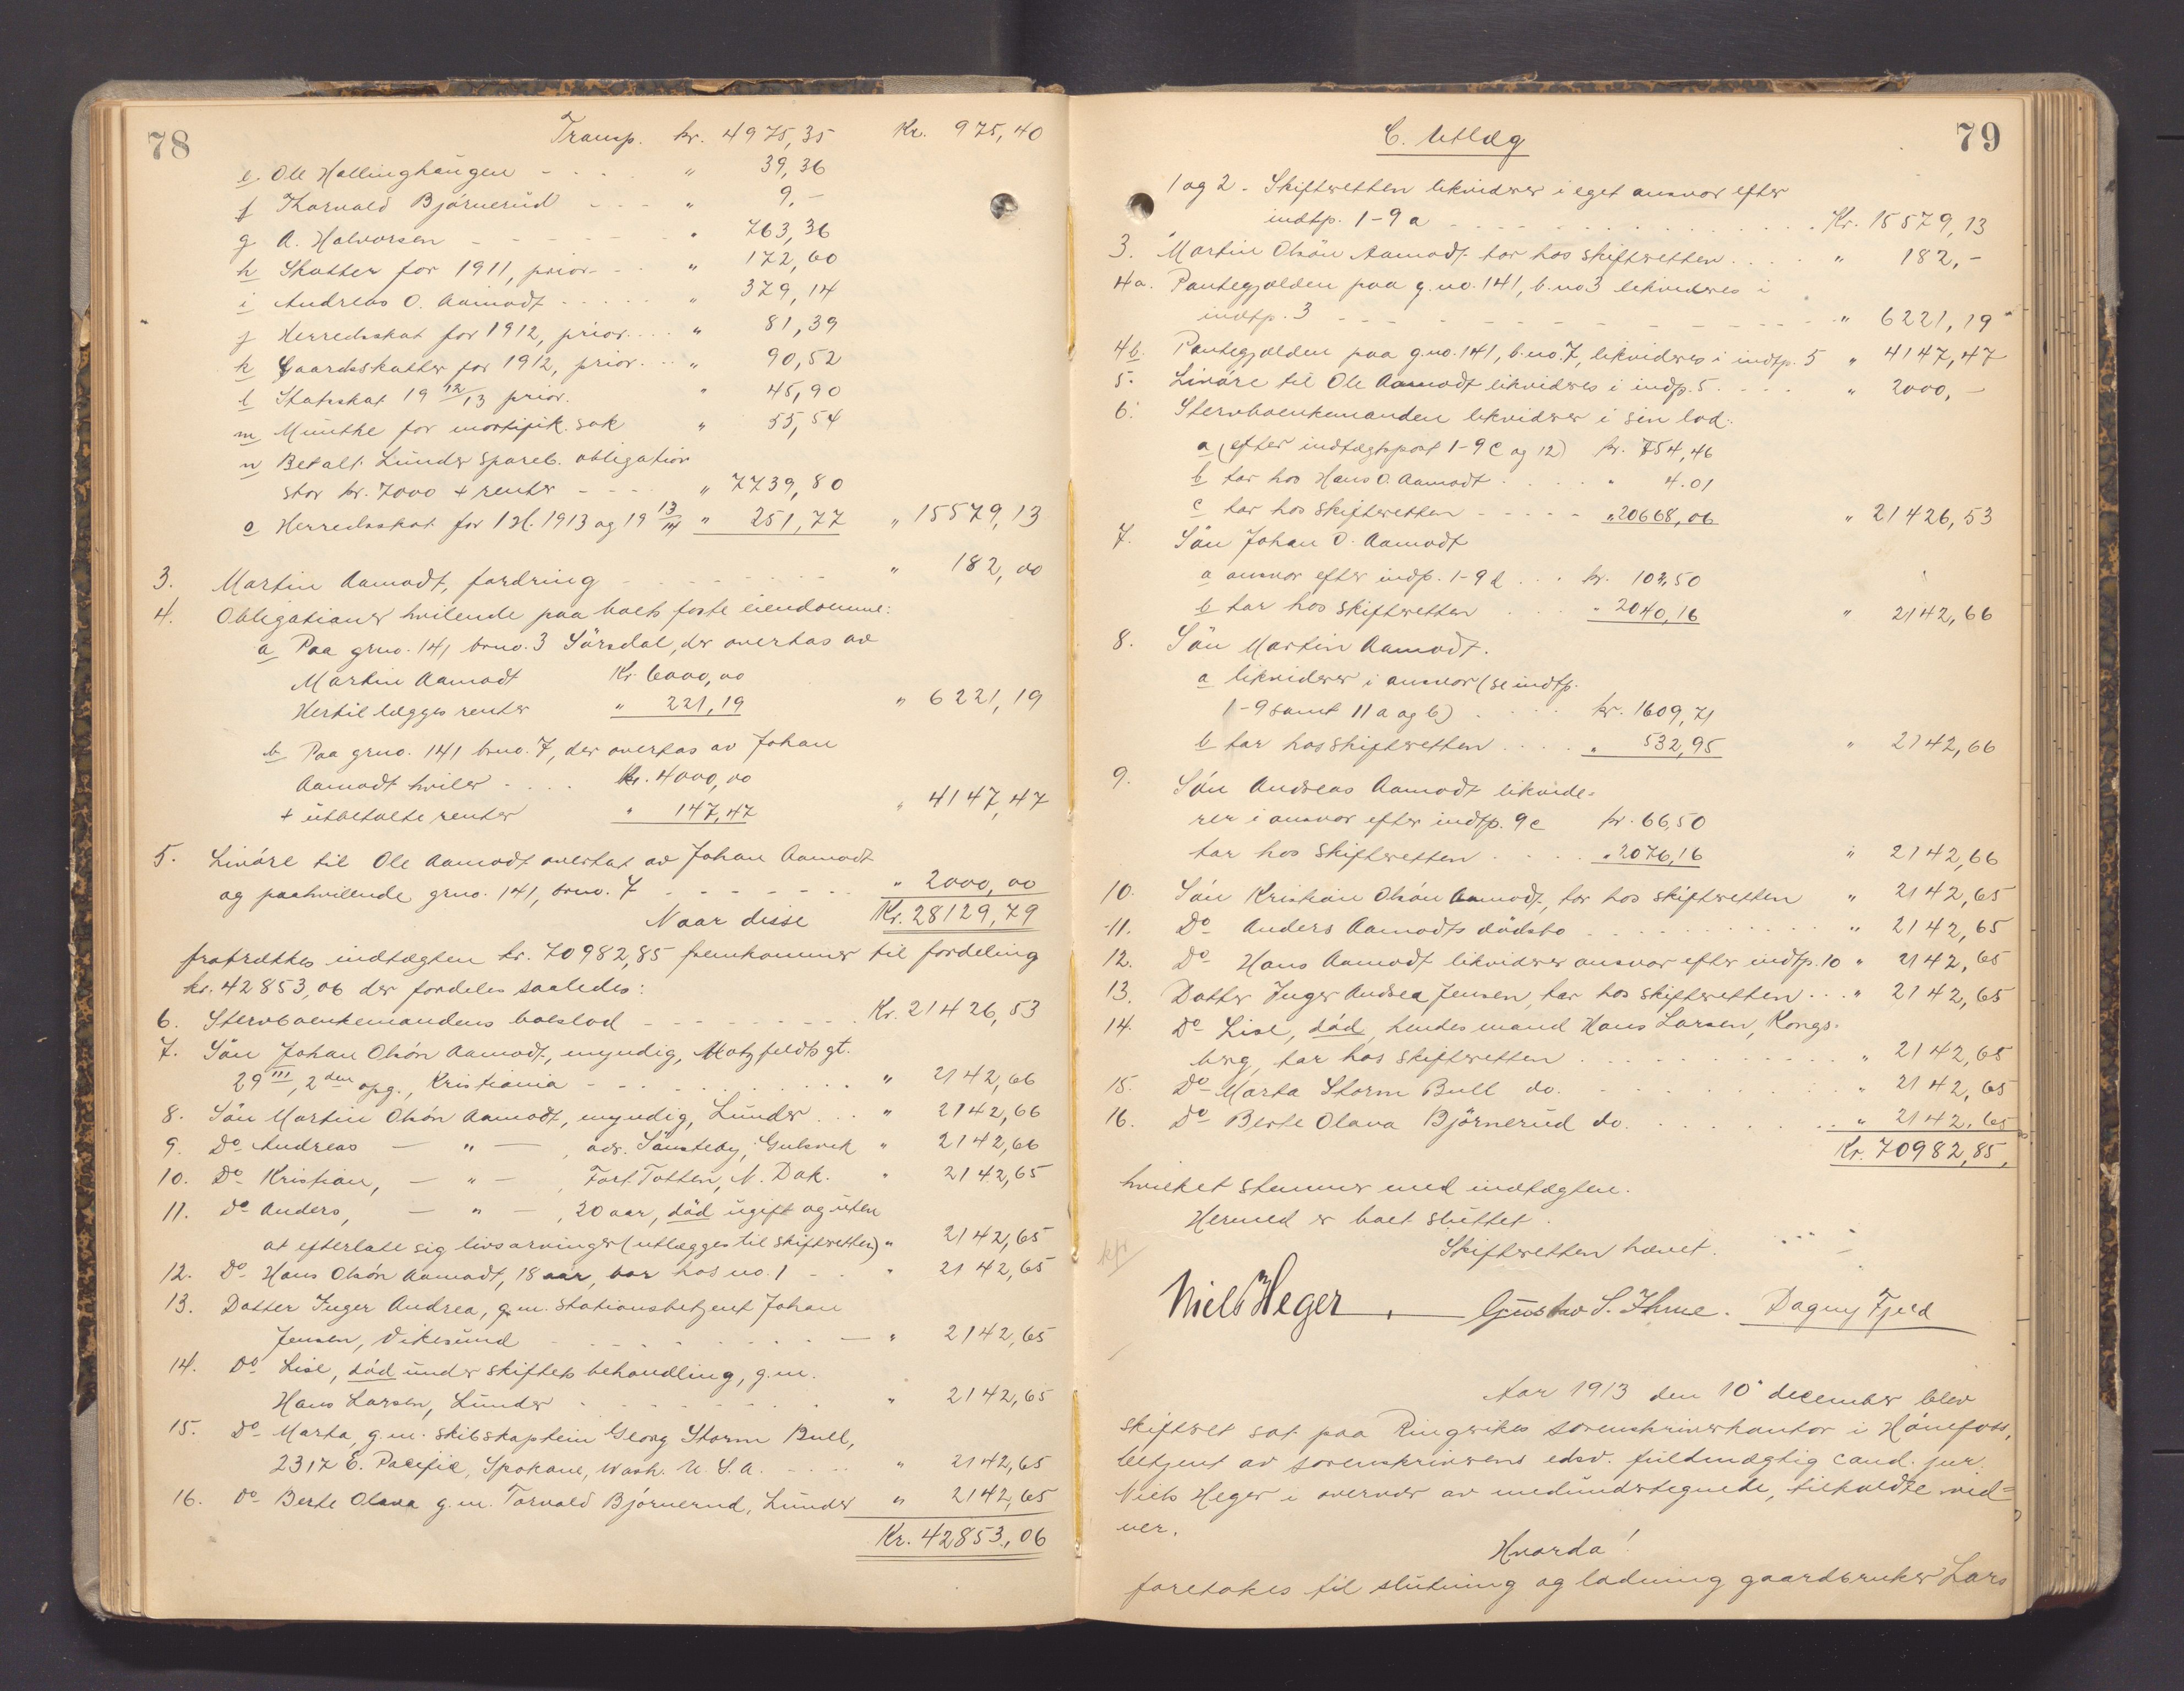 78
Transp. kr. 4975,35 Kr. 975,40
e. Ole Hallinghaugen - - - - " 39,36
f Thorvald Bjørnerud - - - " 9,-
g A. Halvorsen - - - - - - " 763,36
h Skatter for 1911, prior. - - " 172,60
i Andreas O. Aamodt - - - - - " 379,14
j Herredsskat for 1912, prior. - - " 81,39
k Gaardsskatter for 1912, prior. - - " 90,52
l Statsskat 19 12/13 prior. " 45,90
m Münthe for mortifik. sak " 55,54
n Betalt Lunder spareb. obligation
stor kr. 7000 + renter - - - " 7739,80
o Herredsskat for 1 H. 1913 og 19 13/14 " 251,77 " 15579,13
3. Martin Aamodt, fordring - - - - - - - - " 182,00
4. Obligationer hvilende paa boets faste eiendomme:
a Paa grno. 141 brno. 3 Sörsdal, der overtas av
Martin Aamodt Kr. 6000,00
Hertil lægges renter " 221,19 " 6221,19
b Paa grno. 141 brno. 7, der overtas av Johan
Aamodt hviler . . . . Kr. 4000,00
+ utbetalte renter " 147,47 " 4147,47
5. Livöre til Ole Aamodt overtat av Johan Aamodt
og paahvilende grno. 141, brno. 7 - - - - - - - " 2000,00
Naar disse Kr. 28129,79
fratrækkes indtægten kr. 70982,85 fremkommer til fordeling
kr. 42853,06 der fordeles saaledes:
6. Stervboenkemandens boeslod - - - - - - - . Kr. 21426,53
7. Sön Johan Olsön Aamodt, myndig, Motzfeldts gt.
29 III, 2 den opg., Kristiania - - - - - - - - " 2142,66
8. Sön Martin Olsön Aamodt, myndig, Lunder . . " 2142,66
9. Do Andreas — " — , adr. Sönsteby, Gulsvik " 2142,66
10. Do Kristian, — " — , Fort Totten, N. Dak. " 2142,65
11. do Anders, — " — , 20 aar, död ugift og uten
at efterlate sig livsarvinger (utlægges til skifteretten) " 2142,65
12. Do Hans Olsön Aamodt, 18 aar, bor hos no. 1 - - " 2142,65
13. Datter Inger Andrea, g.m. stationsbetjent Johan
Jensen, Vikesund - - - - - - - — " 2142,65
14. Do Lise, död under skiftets behandling, g.m.
Hans Larsen, Lunder - - - - - - - . " 2142,65
15. Do Marta, g.m. skibskaptein Georg Storm Bull,
2317 E. Pacific, Spokane, Wash. U. S. A. - - - " 2142,65
16. Do Berte Olava g.m. Torvald Bjørnerud, Lunder " 2142,65
Kr. 42853,06
79
C. Utlæg
1 og 2. Skifteretten likviderer i eget ansvar efter
indtp. 1-9 a - . . . . . . . . . . . . Kr. 15579,13
3. Martin Olsön Aamodt tar hos skifteretten . . . . " 182,-
4a. Pantegjælden paa g.no. 141, b.no 3 likvideres i
indtp. 3 - - - - - - - - - - - " 6221,19
4b. Pantegjælden paa g.no. 141, b.no. 7, likvideres i indtp. 5 " 4147,47
5. Livöre til Ole Aamodt likvideres i indp. 5. - - - " 2000,-
6. Stervboenkemanden likviderer i sin lod.
a (efter indtægtspost 1-9 c og 12) kr. 754,46
b tar hos Hans O. Aamodt . . . . " 4.01
c tar hos skifteretten - - - - - " 20668,06 " 21426,53
7. Sön Johan O. Aamodt
a ansvar efter indp. 1-9 d . . . kr. 102,50
b tar hos skifteretten . . . . " 2040,16 " 2142,66
8. Sön Martin Aamodt.
a likviderer i ansvar (se indtp.
1-9 samt 11 a og b) . . . . kr. 1609,71
b tar hos skifteretten . . . . " 532,95 " 2142,66
9. Sön Andreas Aamodt likvide-
rer i ansvar efter indtp. 9 e kr. 66,50
tar hos skifteretten . . . . " 2076,16 " 2142,66
10. Sön Kristian Olsön Aamodt, tar hos skifteretten " 2142,65
11. Do Anders Aamodts dödsbo . . . . . . . . . . " 2142,65
12. Do Hans Aamodt likviderer ansvar efter indtp. 10 " 2142,65
13. Datter Inger Andrea Jensen, tar hos skifteretten . . . " 2142,65
14. Do Lise, död, hendes mand Hans Larsen, Kongs-
berg, tar hos skifteretten . . . . . . . . . . . " 2142,65
15. Do Marta Storm Bull do. - - - - . . . . " 2142,65
16. Do Berte Olava Björnerud do. . . . . . . . " 2142,65
Kr. 70982,85,
hvilket stemmer med indtægten.
Hermed er boet sluttet.
Skifteretten hævet.
Niels Heger, Gustav S. Ihme. Dagny Fjeld
Aar 1913 den 10' december blev
skifteret sat paa Ringerikes sorenskriverkontor i Hönefoss,
betjent av sorenskriverens edsv. fuldmægtig cand. jur.
Niels Heger i overvær av medundertegnede, tilkaldte vid-
ner.
Hvorda!
foretokes til slutning og lodning gaardbruker Lars